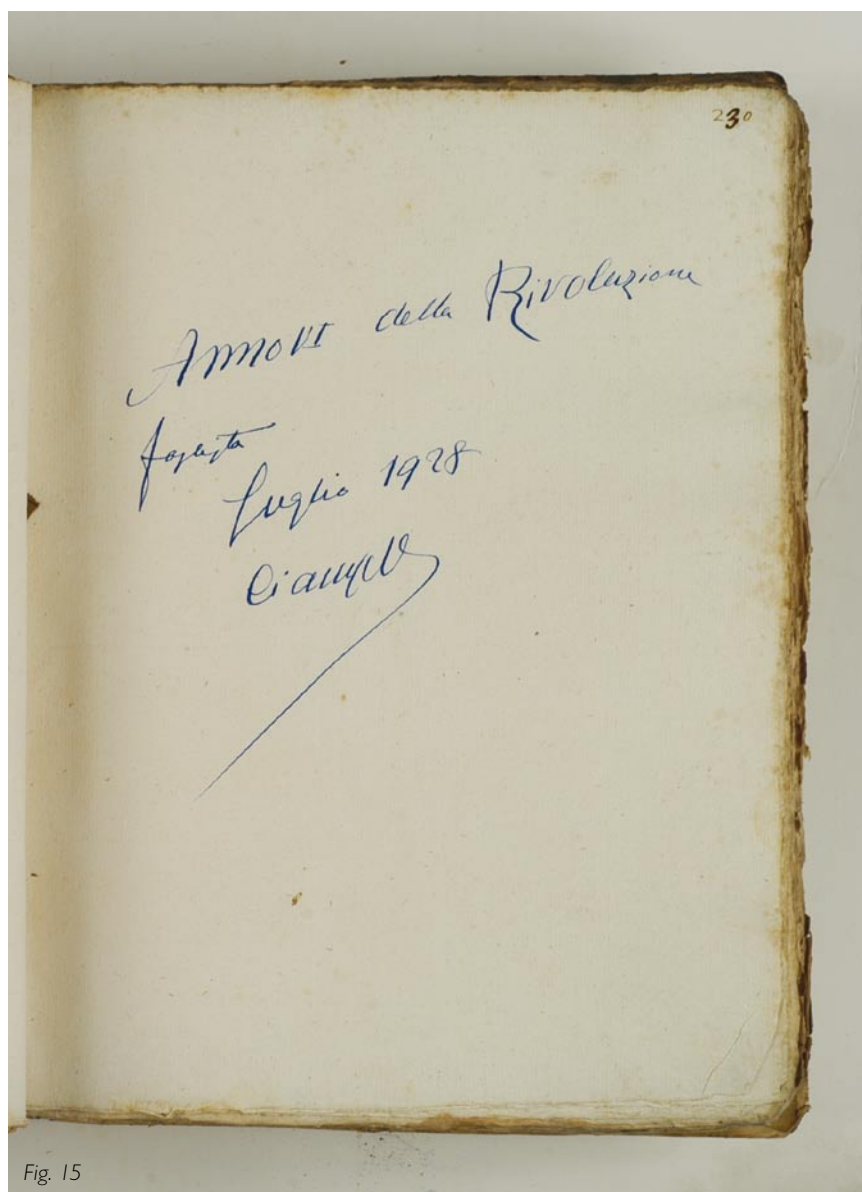 230
Anno VI della Rivoluzione
fascista
Luglio 1928
Fig. 15